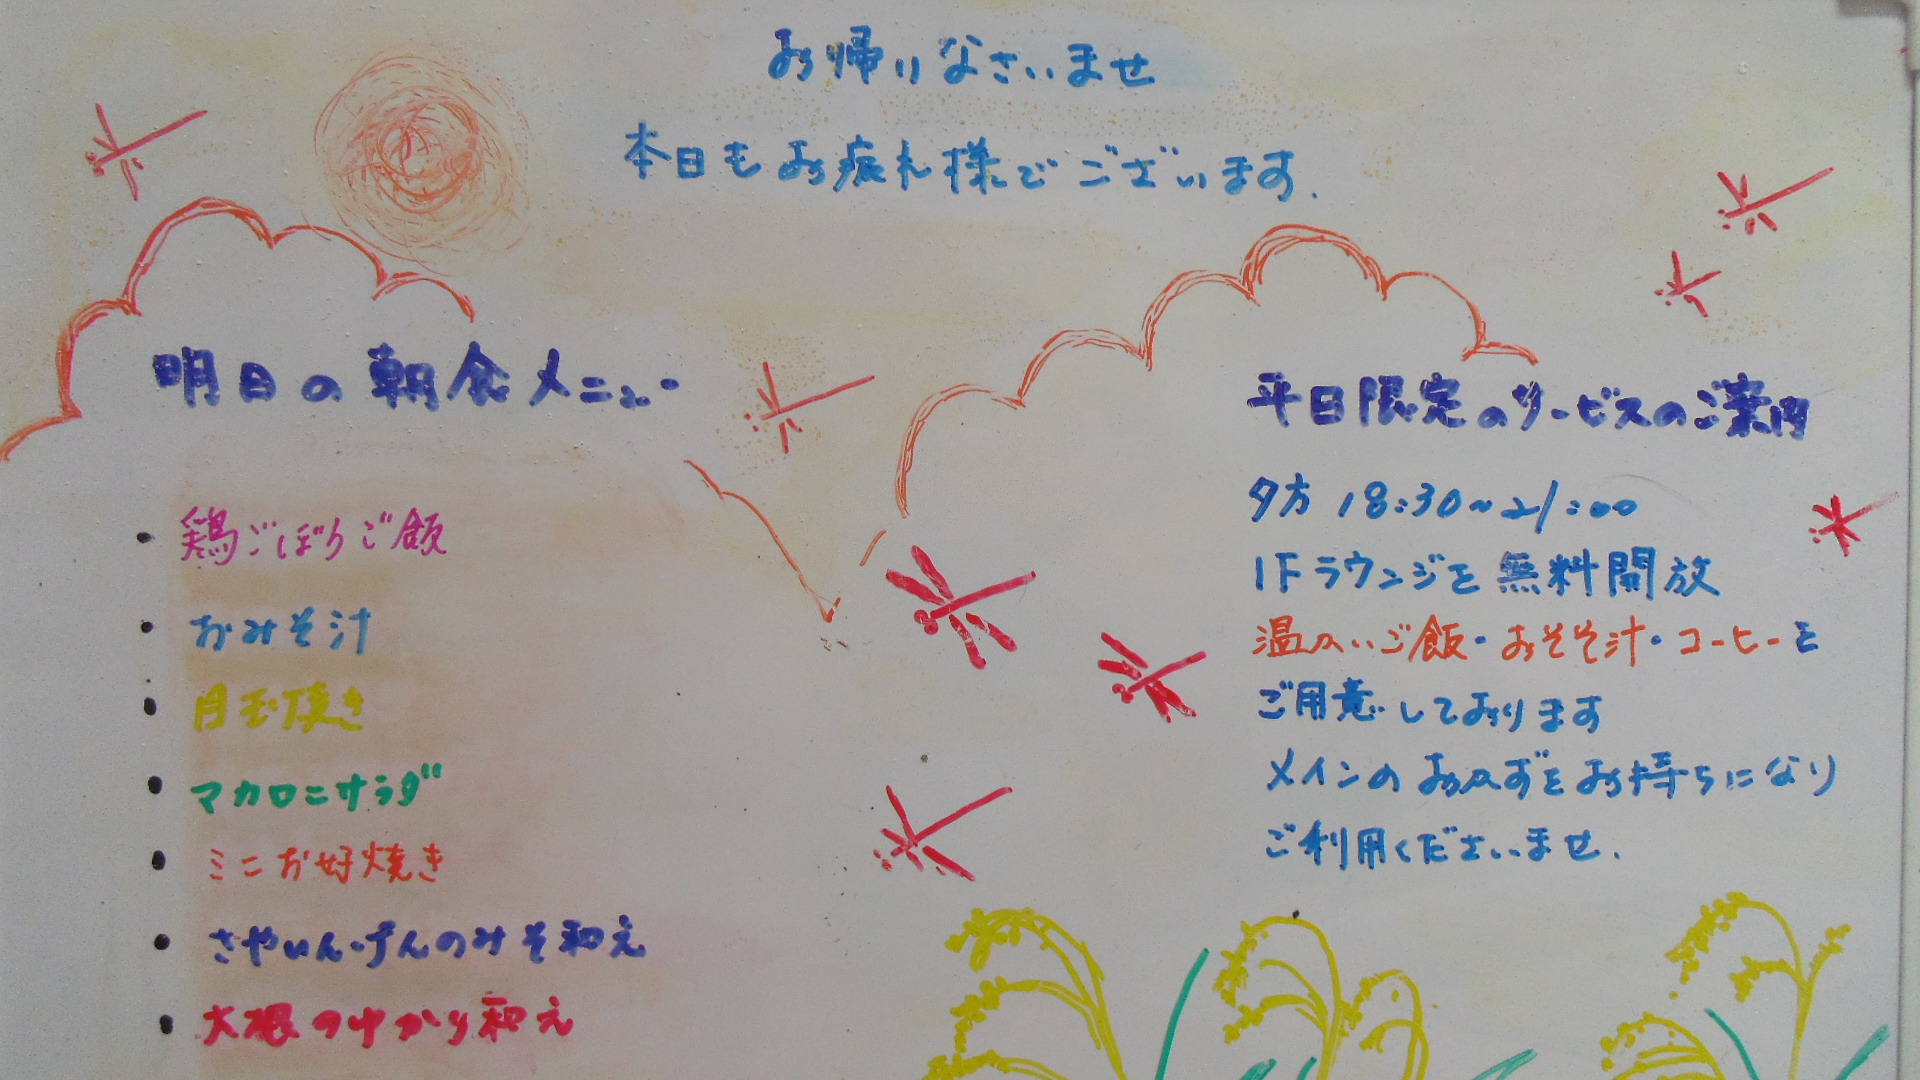 お帰りなさいませ
本日もお疲れ様でございます.
明日の朝食メニュー
・鶏ごぼうご飯
・おみそ汁
・目玉焼き
・マカロニサラダ
・ミニお好焼き
・さやいんげんのみそ和え
・大根のゆかり和え
平日限定のサービスのご案内
夕方 18:30~21:00
1Fラウンジを無料開放
温かいご飯・おみそ汁・コーヒーを
ご用意しております
メインのおかずをお持ちになり
ご利用くださいませ.